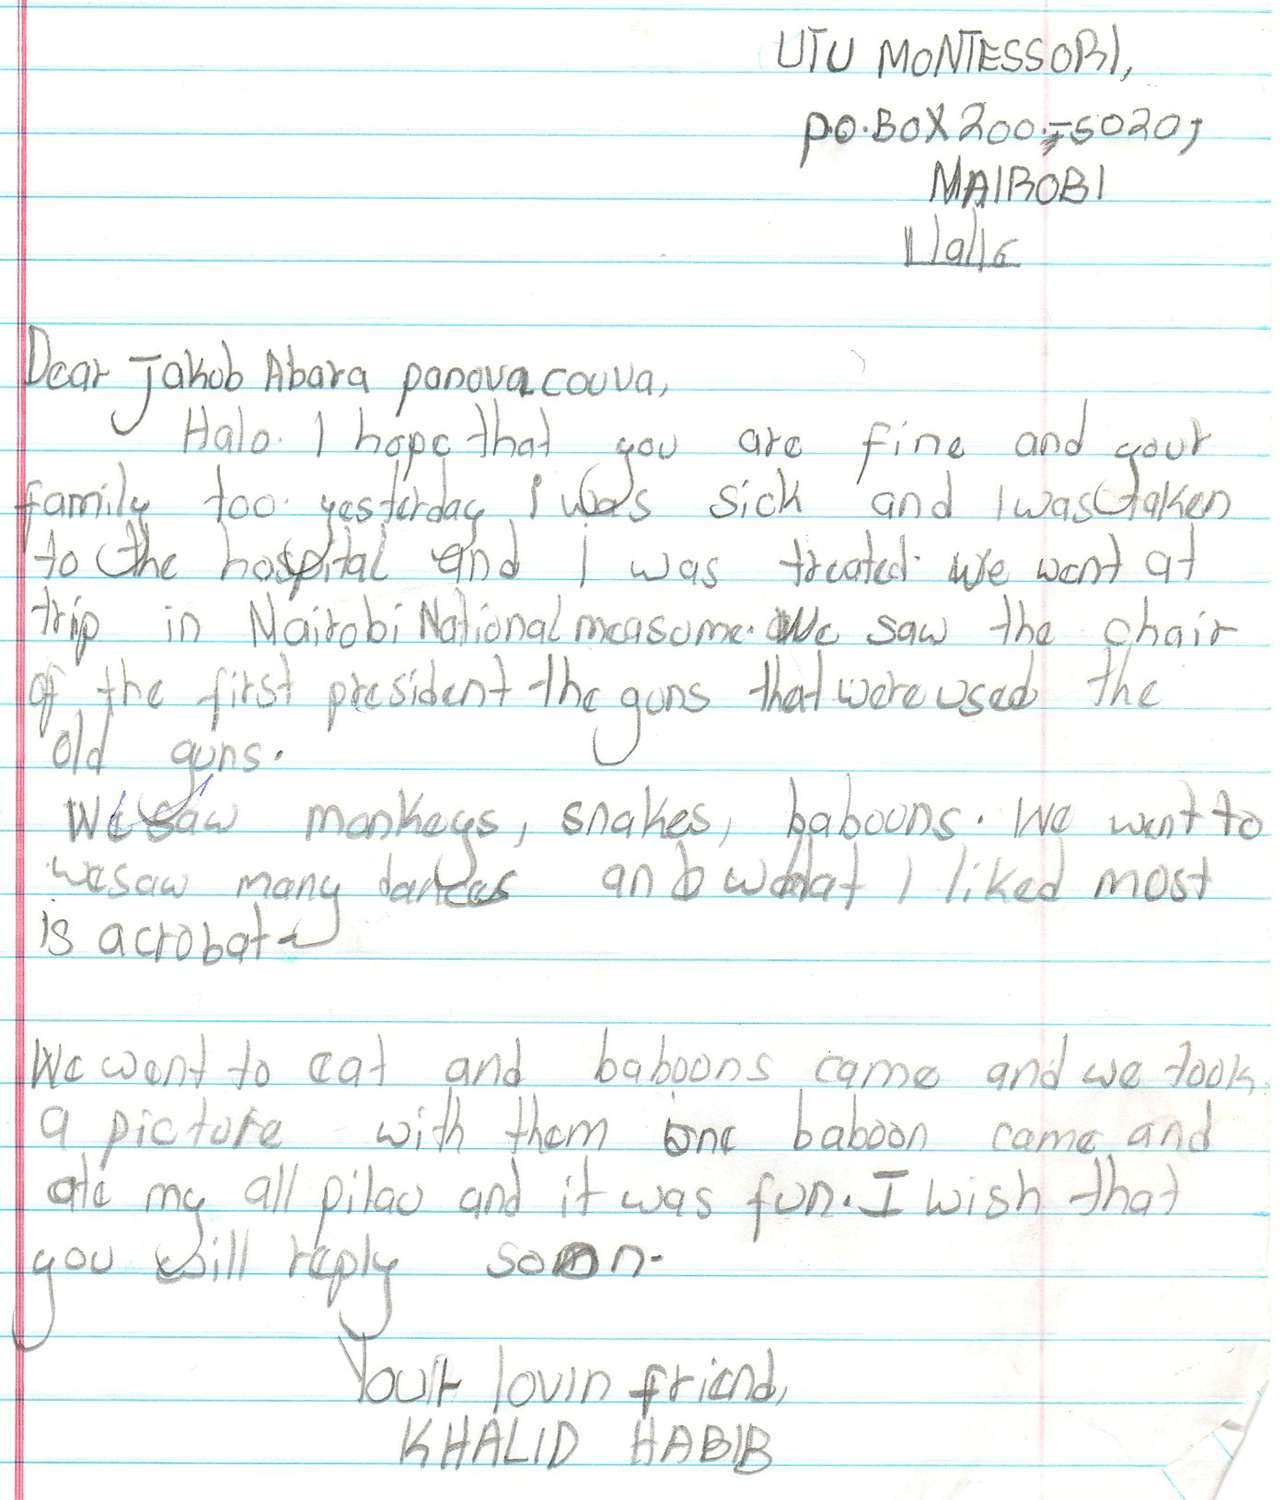 UTU MONTESSORI,
P.O.BOX 200-5020,
NAIROBI
Dear Jakob Abara panovacouva,
Halo. I hope that you are fine and your
family too. yesterday I was sick and I was taken
to the hospital and I was treated. We want at
trip in Nairobi National measome. We saw the chair
of the first president the guns that were used the
old guns.
We saw monkeys, snakes, baboons. We went to
we saw many dances anb what I liked most
is acrobat
We went to eat and baboons came and we took
a picture with them one baboon came and
ate my all pilau and it was fun. I wish that
you will reply soon.
Your lovin friend,
KHALID HABIB